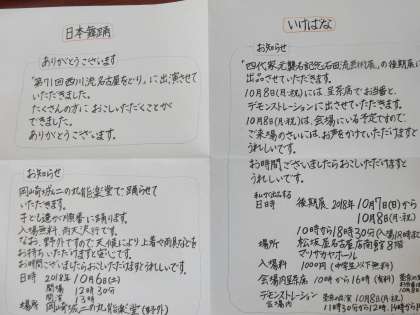 日本舞踊
ありがとうございます
"第71回西川流名古屋をどり"に出演させて
いただきました。
たくさんの方に おこしいただくことが
できました。
ありがとうございます。
お知らせ
岡崎城二の丸能楽堂で踊らせて
いただきます。
子ども達が順番に踊ります。
入場無料 雨天決行です。
なお、野外ですので天候により上着や雨具などを
お持ちいただけますと安心です。
お時間ございましたらおこしいただけますとうれしいです。
日時 2018年10月6日(土)
開場 12時30分
開演 13時
場所 岡崎城二の丸能楽堂(野外)
いけばな
お知らせ
"四代家元襲名記念石田流芸術展"の後期展に
出品させていただきます。
10月8日(月・祝)には 呈茶席でお当番と、
デモンストレーションに出させていただきます。
10月8日(月・祝)は、会場にいる予定ですので、
ご来場のさいには、お声をかけていただけますと
うれしいです。
お時間ございましたらおこしいただけますと
うれしいです。
私が出品する
日時 後期展 2018年10月7日(日)から
10月8日(月・祝)
10時から18時30分
場所 松坂屋名古屋店南館8階
マツザカヤホール
入場料 1000円(中学生以下無料)
会場内呈茶席 10時から16時(有料)
デモンストレーション 10月8日(月・祝)
会場内 11時30分から12時、14時から